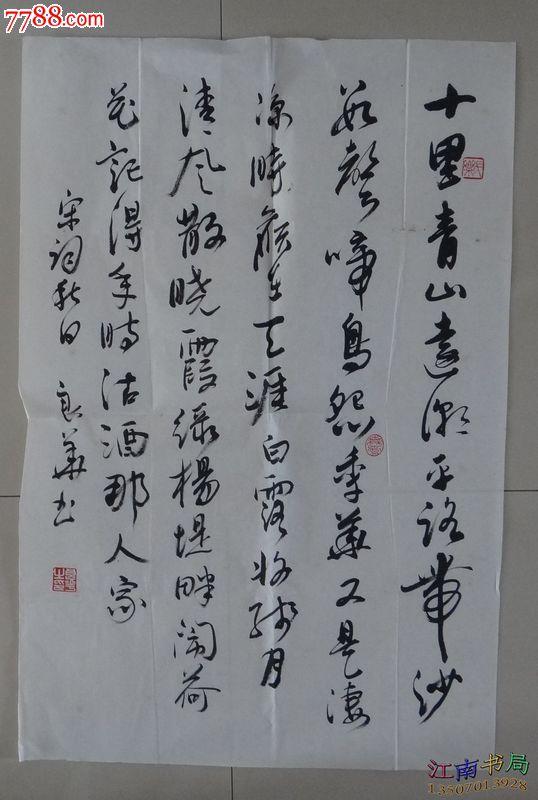 7788.com
十里青山遠潮平路帶沙
数聲啼鳥怨年華又是凄
凉時候在天涯白露收残月
清风散晓霞緑楊堤畔闹荷
花记得年時沽酒那人家
宋词秋日 良華书
江南书局
13507013928